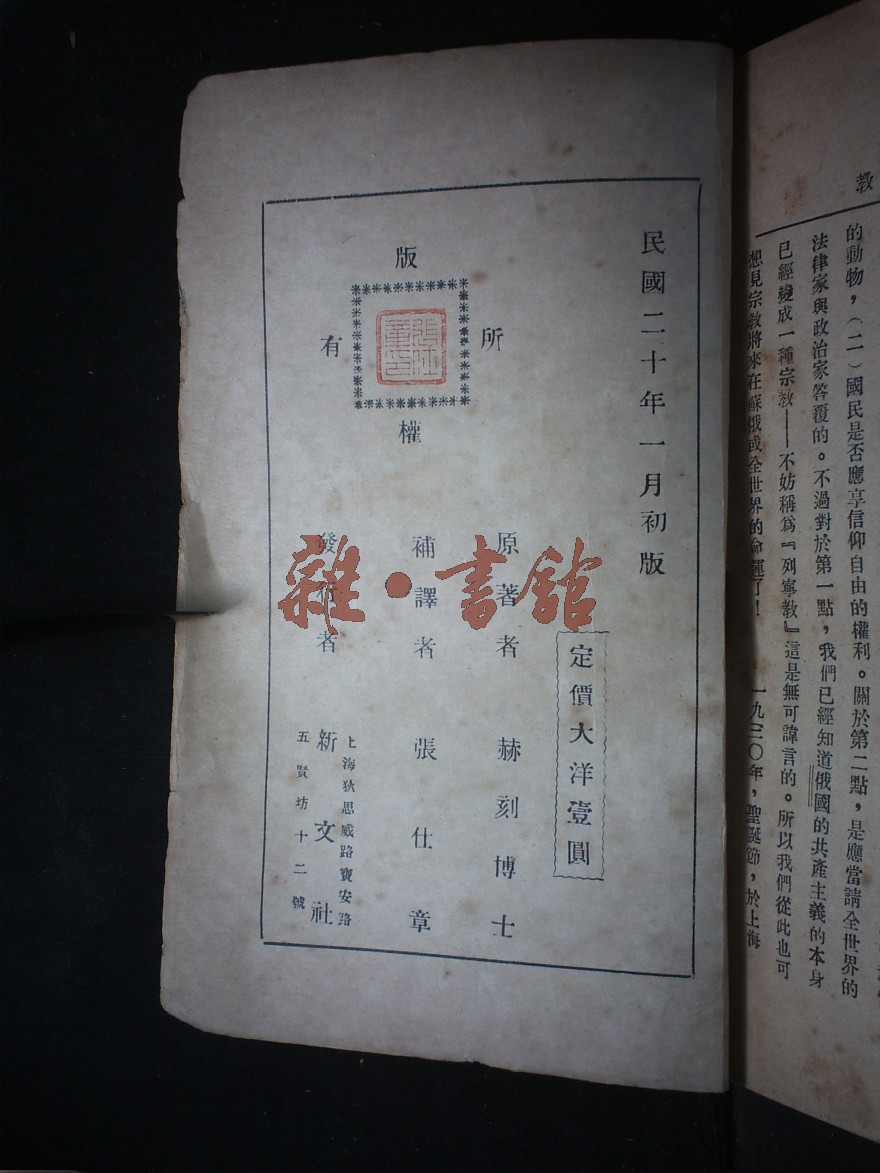 教
的動物，（二）國民是否應享信仰自由的權利。關於第二點，是應當請全世界的
法律家與政治家答覆的。不過對於第一點，我們已經知道俄國的共產主義的本身
已經變成一種宗教——不妨稱為『列寧教』這是無可諱言的。所以我們從此也可
想見宗教將來在蘇俄或全世界的命運了！　一九三〇年，聖誕節，於上海
民國二十年一月初版
定價大洋壹圓
版權所有
原著者 赫刻博士
補譯者 張仕章
發行者 新文社
上海狄思威路寶安路
五賢坊十二號
雜·書館